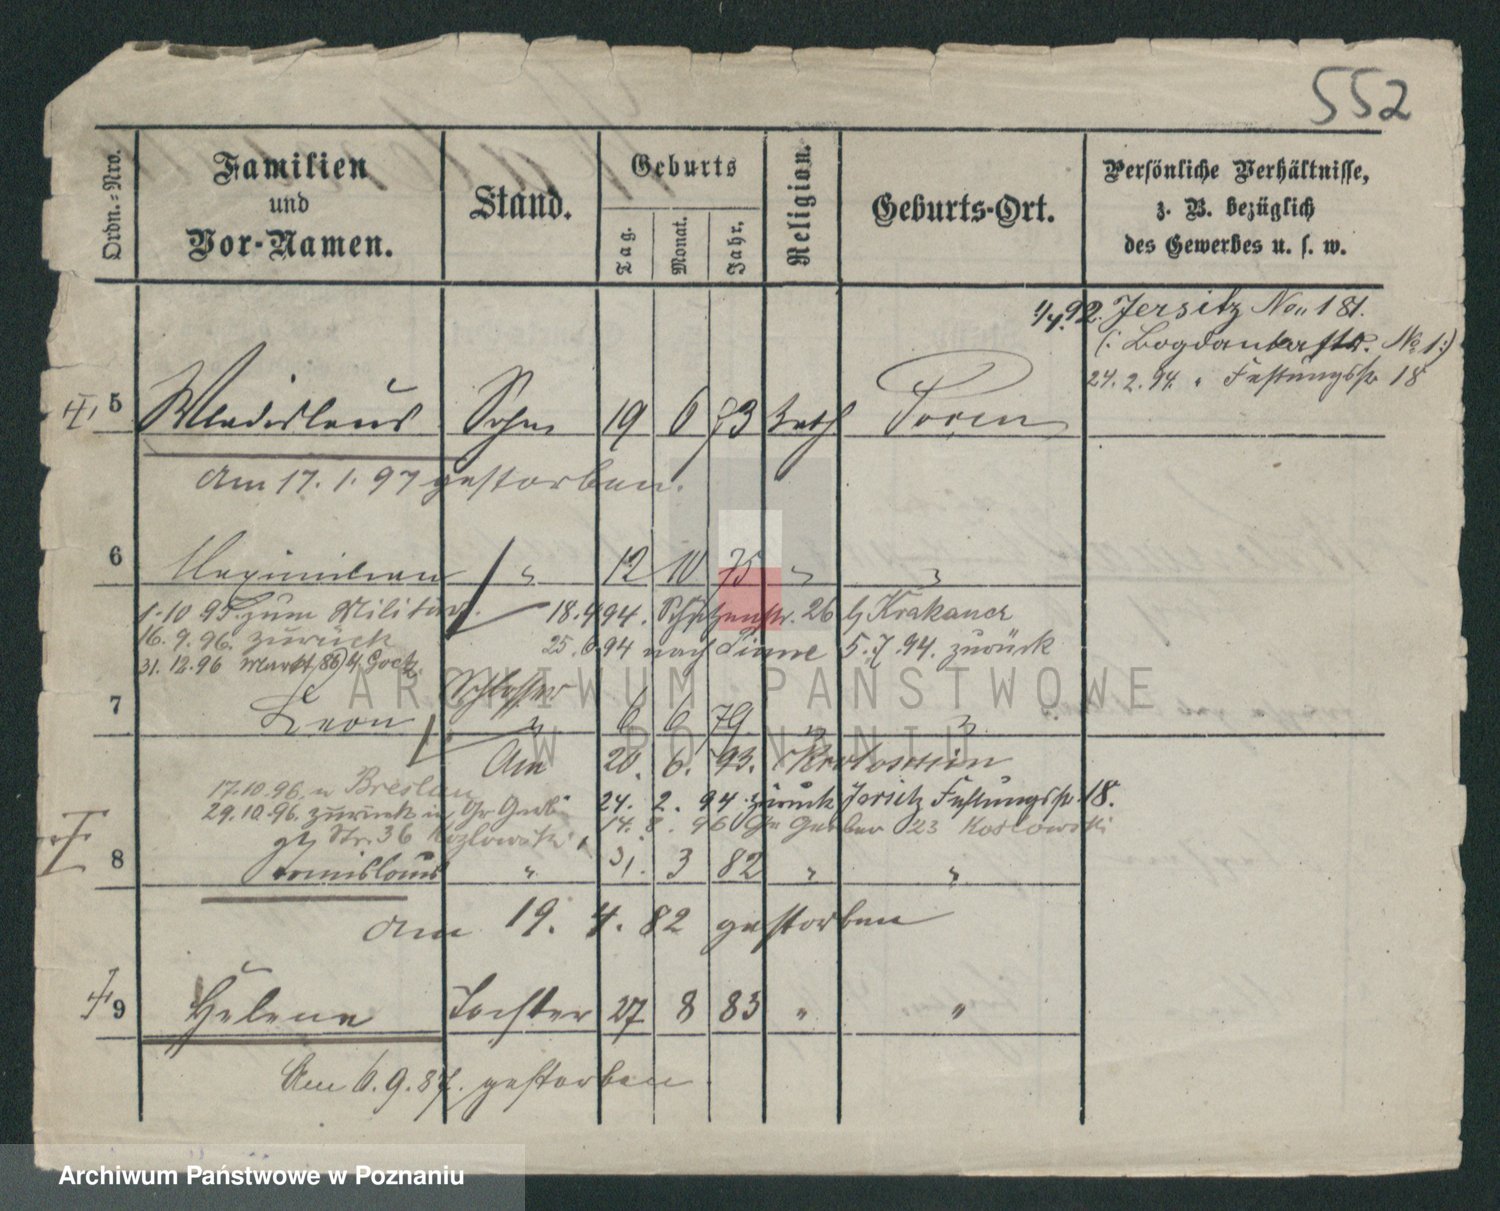 552
Ordn.-Nro.
Familien und Vor-Namen.
Stand.
Geburts
Tag.
Monat.
Jahr.
Religion.
Geburts-Ort.
Persönliche Verhältnisse, z. B. bezüglich des Gewerbes u. s. w.
1/4.92. Jersitz No. 181.
(: Bogdankastr. No 1:)
24.2.94. " Festungsstr 18
5 Wladislaus Sohn 19 6 73 Kath Posen
Am 17. 1. 97 gestorben.
6 Maximilian " 12 10 75 " "
1.10 95 zum Militär.
18.4 94. Schützenstr. 26 b/ Krakauer
16.9.96. zurück
25.6.94 nach 5.7.94. zurück
31.12.96 Markt 86
Schlosser
7 Leon " 6 6 79 " "
Am 20. 6. 93. Krotoschin
17.10.96. n Breslau
24. 2. 94 zurück Jersitz Festungsstr 18.
29.10.96. zurück in Gr. Gerber
14. 8. 96 Gr Gerber 23 Koslowski
Str. 36 Kozlowski
8 " 31. 3 82 " "
am 19. 4. 82 gestorben
9 Helene Tochter 27 8 83 " "
Am 6.9.87. gestorben.
ARCHIWUM PAŃSTWOWE
W POZNANIU
Archiwum Państwowe w Poznaniu